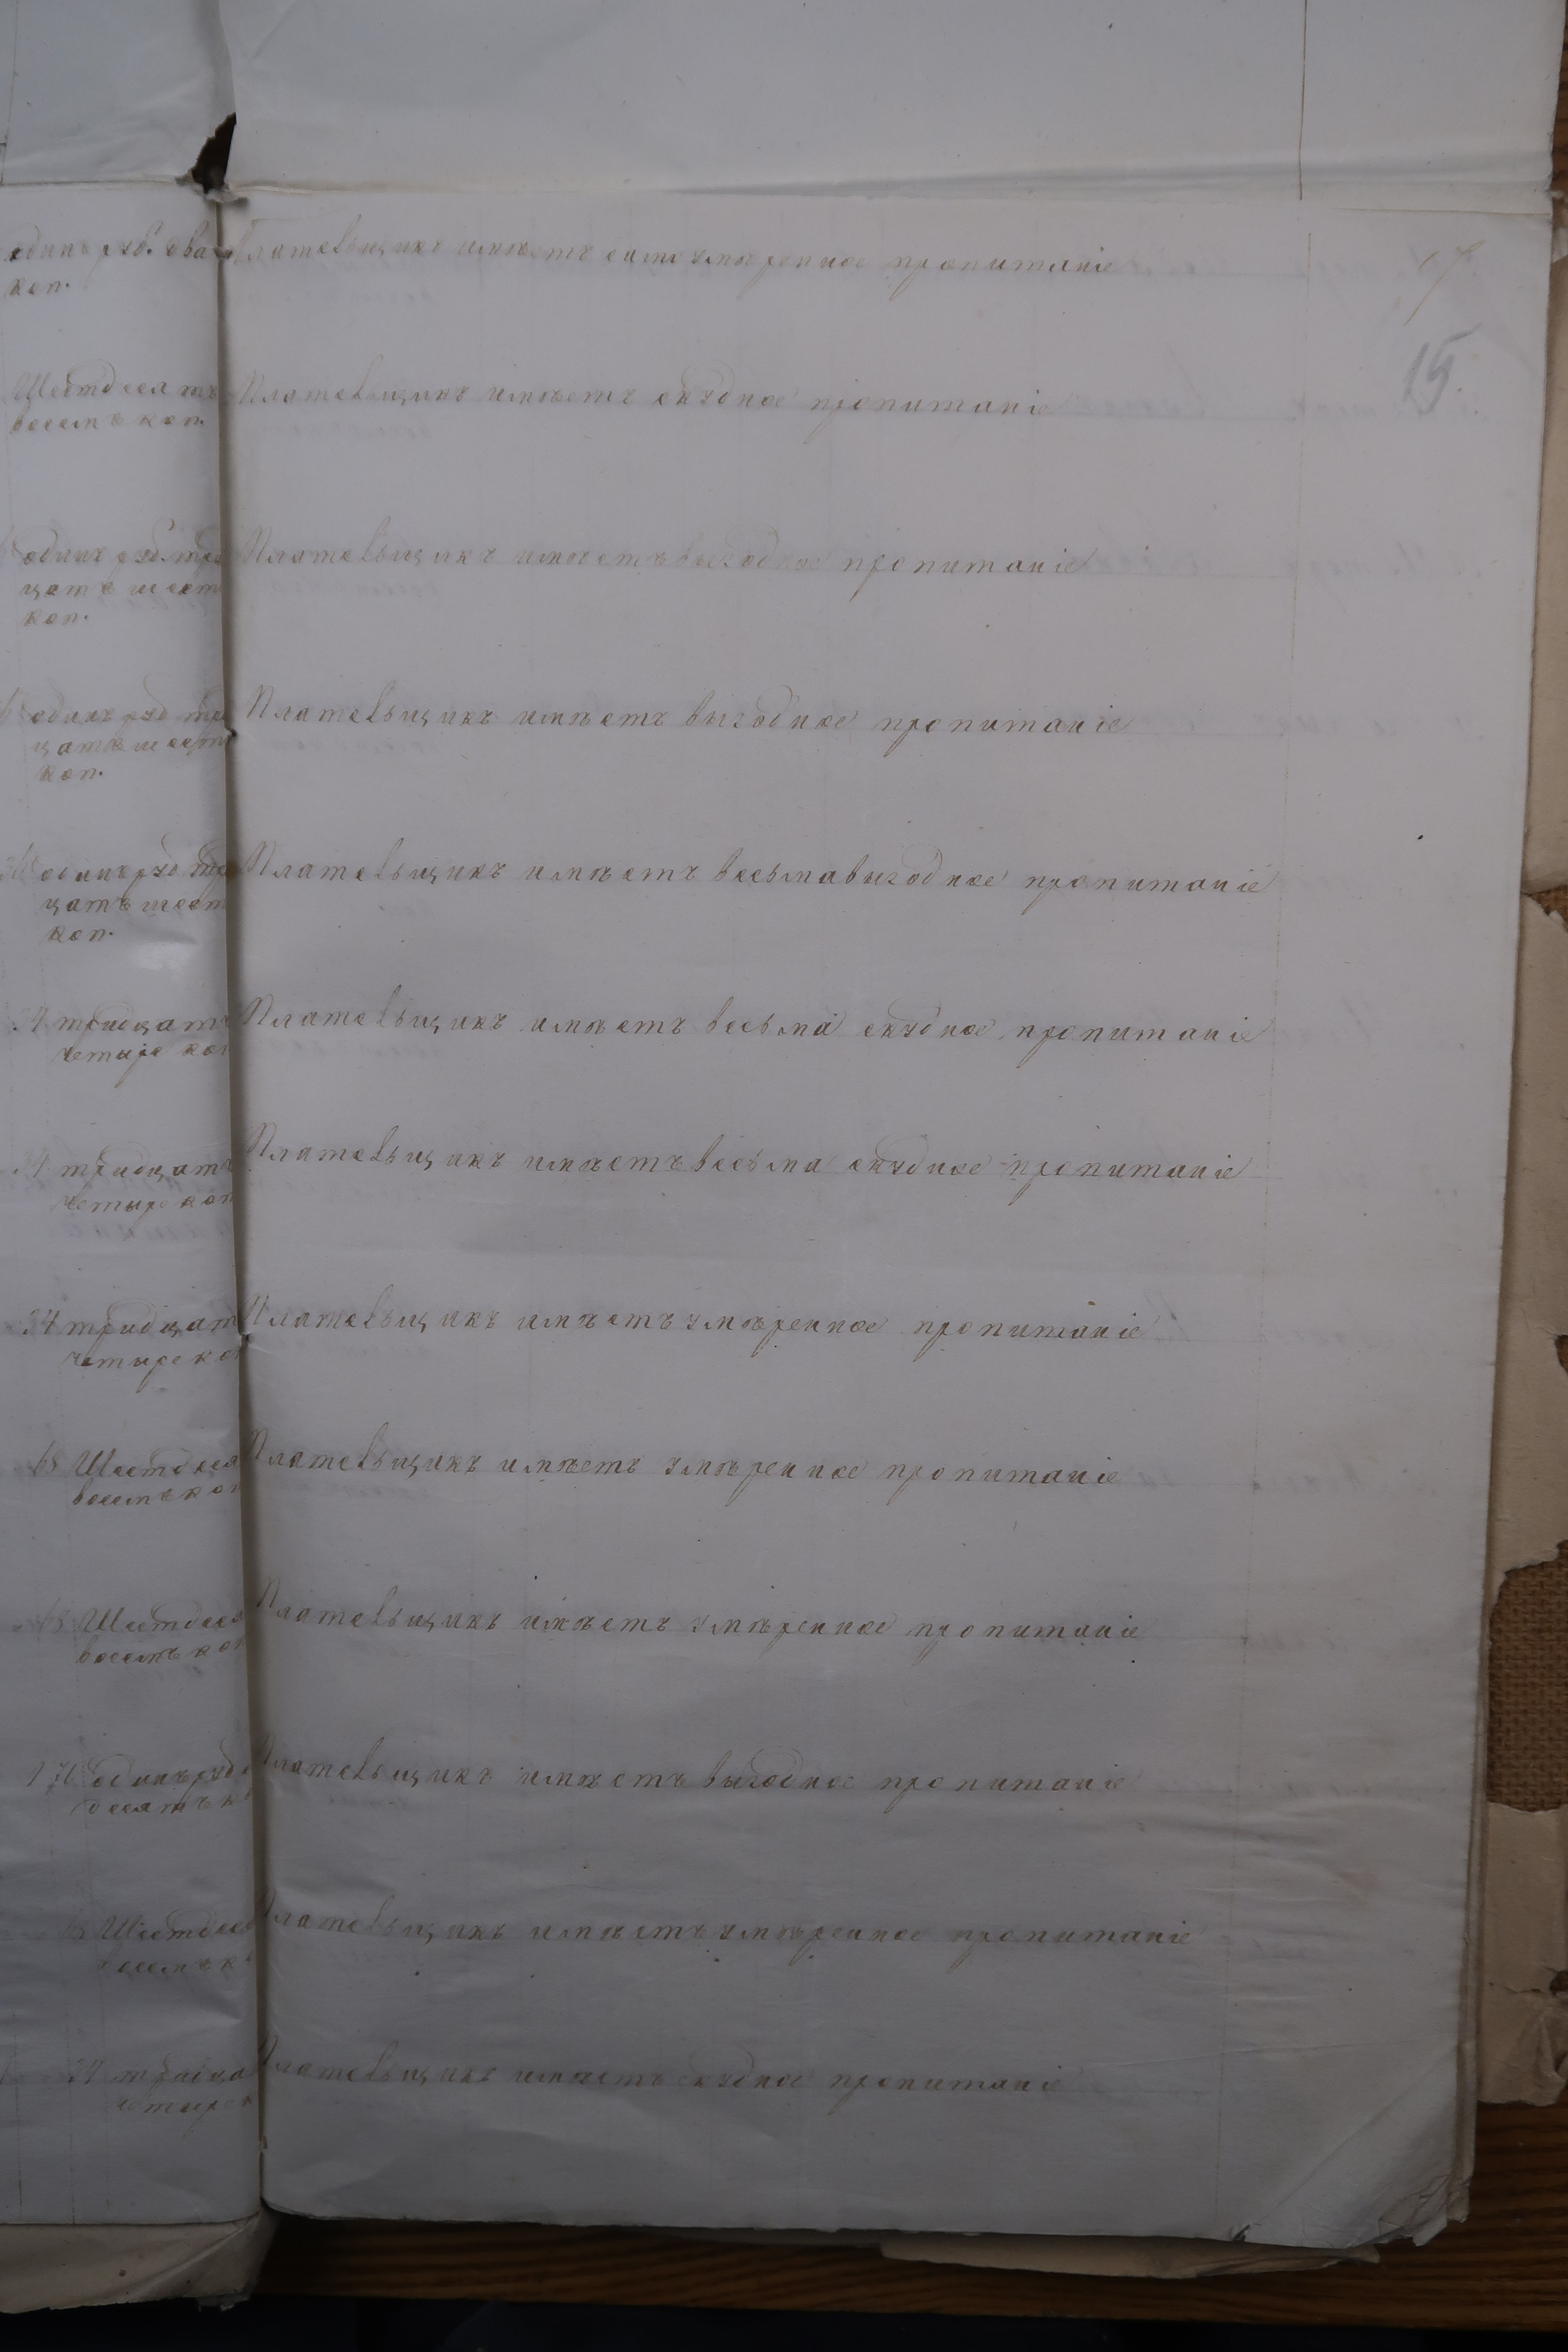 17
15.
одинъ руб. два
коп.
Плательщикъ имѣетъ умѣренное пропитаніе
Шестдесятъ
восемъ коп.
Плательщикъ имѣетъ скудное пропитаніе
одинъ руб. три
цать шест
коп.
Плательщикъ имѣетъ выгодное пропитаніе
одинъ руб три
цать шест
коп.
Плательщикъ имѣетъ выгодное пропитаніе
одинъ руб три
цать шест
коп.
Плательщикъ имѣетъ весьма выгодное пропитаніе
34 тридцать
четыре коп
Плательщикъ имѣетъ весьма скудное пропитаніе
34 тридцать
четыре коп
Плательщикъ имѣетъ весьма скудное пропитаніе
34 тридцат
четыре коп
Плательщикъ имѣетъ умѣренное пропитаніе
68 Шестдеся
восемъ коп
Плательщикъ имѣетъ умѣренное пропитаніе
68 Шестдеся
восемъ коп
Плательщикъ имѣетъ умѣренное пропитаніе
1 70 одинъ руб
десятъ к
Плательщикъ имѣетъ выгодное пропитаніе
Шестдес
восемъ к
Плательщикъ имѣетъ умѣренное пропитаніе
34 тридца
четыре
Плательщикъ имѣетъ скудное пропитаніе